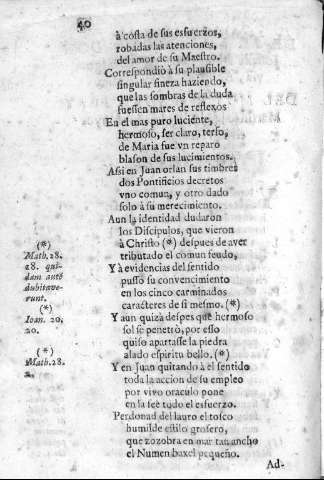 40
à costa de sus esfuerzos,
robadas las atenciones,
del amor de su Maestro.
Correspondiò à su plausible
singular fineza haziendo,
que las sombras de la duda
fuessen mares de reflexos
En el mas puro luciente,
hermoso, ser claro, terso,
de Maria fue vn reparo
blason de sus lucimientos.
Assi en Juan orlan sus timbres
dos Pontificios decretos
vno comun, y otro dado
solo à su merecimiento.
Aun la identidad dudaron
los Discipulos, que vieron
à Christo (*) despues de aver
tributado el comun feudo,
Y à evidencias del sentido
pusso su convencimiento
en los cinco carminados
caracteres de si mesmo. (*)
Y aun quizà despes que hermoso
sol se penetrò, por esso
quiso apartasse la piedra
alado espiritu bello. (*)
Y en Juan quitando à el sentido
toda la accion de su empleo
por vivo oraculo pone
en la feè todo el esfuerzo.
Perdonad del lauro el tosco
humilde estilo grosero,
que zozobra en mar tan ancho
el Numen baxel pequeño.
Ad-
(*)
Math. 28.
28. qui-
dam autẽ
dubitave-
runt.
(*)
Ioan. 20,
20.
(*)
Math. 28.
2.